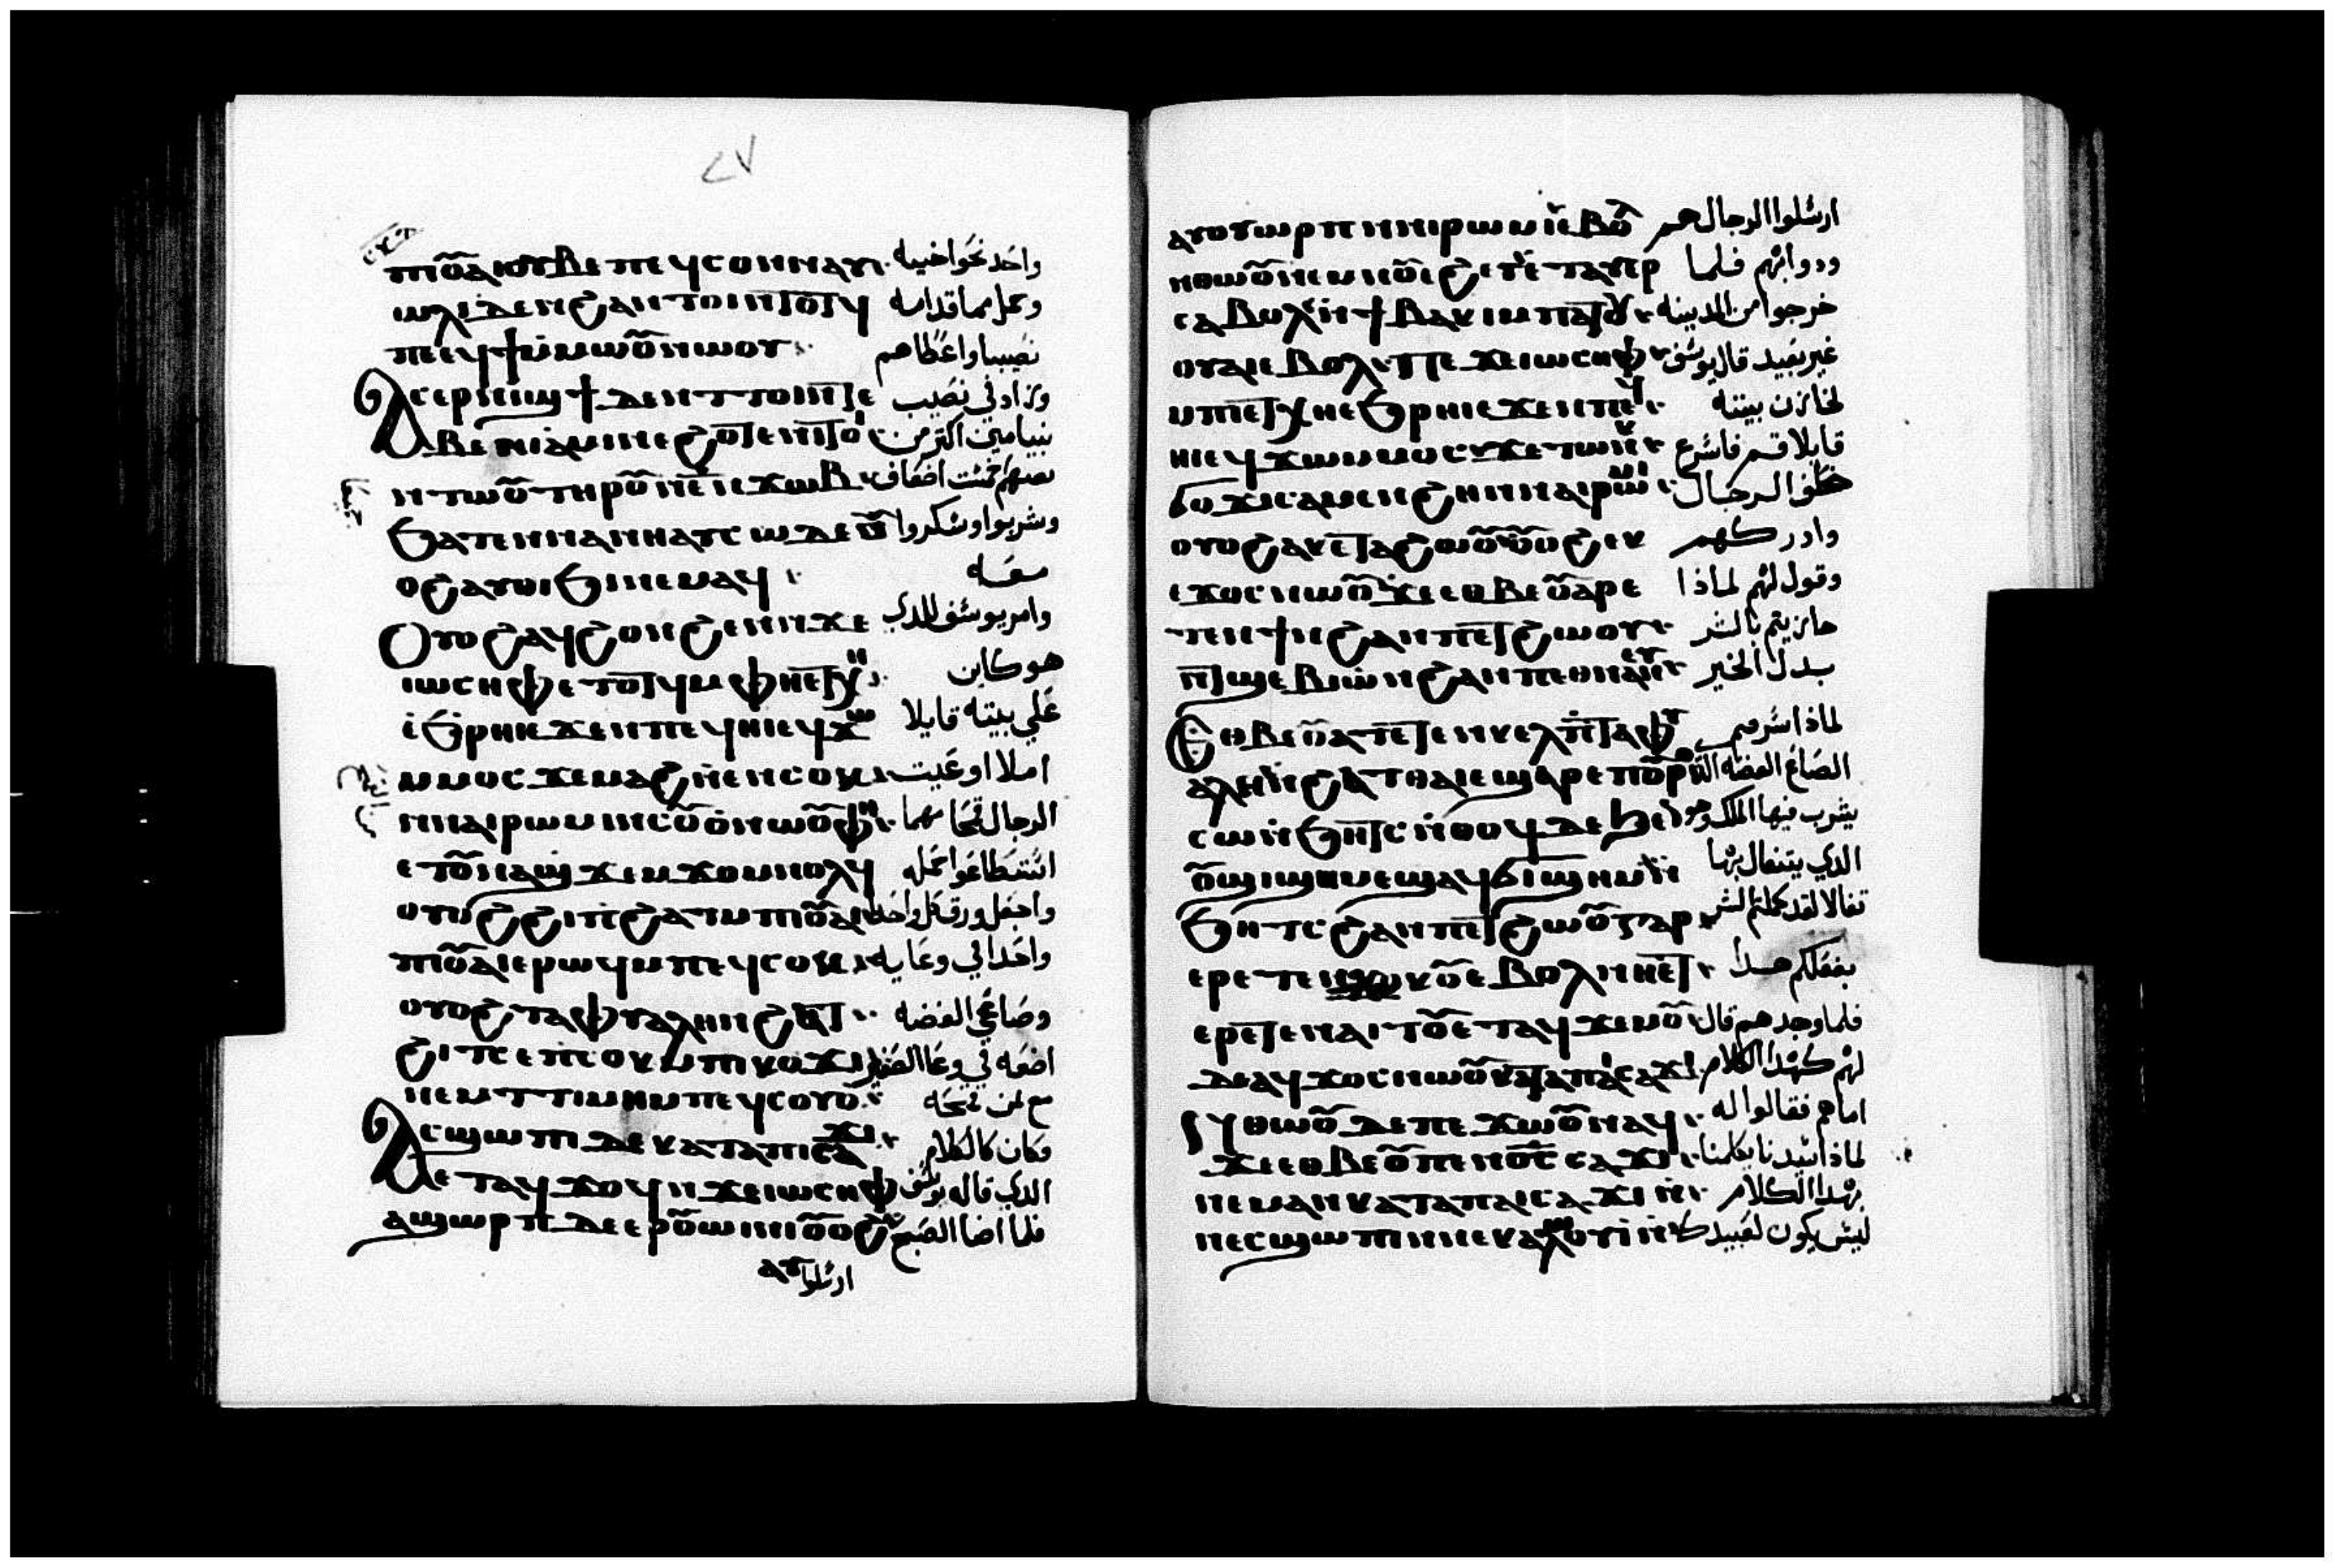 ٢٧
ⲡⲓⲟⲩⲁⲓ ⲟⲩⲃⲉ ⲡⲉϥⲥⲟⲛ ⲛⲁⲩ واحد نحو اخيه
ⲱⲗⲓ ⲇⲉ ⲛϩⲁⲛⲧⲟⲓ ⲛⲧⲟⲧϥ وحمل مما قدامه
ⲡⲉ ⲉϥϯ ⲙⲙⲱⲟⲩ ⲛⲱⲟⲩ نصيبا واعطاهم
ⲁⲥⲉⲣⲛⲓϣϯ ⲇⲉ ⲛⲧⲧⲟⲓ ⲛⲧⲉ وزاد في نصيب
ⲃⲉⲛⲓⲁⲙⲓⲛ ⲉϩⲟⲧⲉ ⲛⲓⲧⲟⲓ بنيامين اكثر من
ⲛⲧⲱⲟⲩ ⲧⲏⲣⲟⲩ ⲛⲉ ⲛⲭⲱⲃ اضعاف
ϧⲁⲧⲉⲛ ⲛⲁⲓ ⲛⲁⲩⲥⲱ ⲇⲉ ⲟⲩ وشربوا وسكروا
ⲟϩ ⲁⲩⲑⲓϧⲓ ⲛⲉⲙⲁϥ معه
ⲟⲩⲟϩ ⲁϥϩⲟⲛϩⲉⲛ ⲛϫⲉ وامر يوسف للذي
ⲓⲱⲥⲏⲫ ⲉⲧⲟⲧϥ ⲙⲫⲏ ⲉⲧⲭⲏ هو كاين
ⲉϧⲣⲏⲓ ⲉϫⲉⲛ ⲡⲉϥⲏⲓ ⲉϥϫⲱ علي بيته قايلا
ⲙⲙⲟⲥ ϫⲉ ⲙⲁϩ ⲛⲉⲛⲥⲟⲕ املا اوعيت
ⲛⲛⲁⲓⲣⲱⲙⲓ ⲛⲥⲟⲩⲟ ⲛⲱⲟⲩ الرجال قمحا مهما
ⲉⲧⲟⲩⲛⲁϣϫⲉⲙϫⲟⲙ ⲛⲟⲗϥ استطاعوا حمله
ⲟⲩⲟϩ ϩⲓ ⲡϩⲁⲧ ⲙⲡⲓⲟⲩⲁⲓ واجعل ورق كل واحد
ⲡⲓⲟⲩⲁⲓ ⲉⲣⲱϥ ⲙⲡⲉϥⲥⲟⲕ واحدا في وعايه
ⲟⲩⲟϩ ⲧⲁⲫⲩⲁⲗⲏ ⲛϩⲁⲧ وصاعي الفضه
ϩⲓⲧⲥ ⲉⲡⲥⲟⲕ ⲙⲡⲓⲕⲟⲩϫⲓ اضعه في وعا الصغير
ⲛⲉⲙ ⲧⲧⲓⲙⲏ ⲙⲡⲉϥⲥⲟⲩⲟ مع ثمن قمحه
ⲁⲥϣⲱⲡⲓ ⲇⲉ ⲕⲁⲧⲁ ⲡⲓⲥⲁϫⲓ وكان كالكلام
ⲉⲧⲁϥϫⲟϥ ⲛϫⲉ ⲓⲱⲥⲏⲫ الذي قاله يوسف
ⲁϣⲱⲣⲡ ⲇⲉ ⲉⲣⲟⲩⲱⲓⲛⲓ ⲟⲩⲟϩ فلما اضا الصبح
ⲁⲩ ارسلوا
ⲁⲩⲟⲩⲱⲣⲡ ⲛⲛⲓⲣⲱⲙⲓ ⲉⲃⲟⲗ ارسلوا الرجال هم
ⲛⲑⲱⲟⲩ ⲛⲉⲙ ⲛⲟⲩⲉϩ ⲉⲧⲁⲩⲉⲣ ودوابهم فلما
ⲥⲁⲃⲟⲗ ⲛϯⲃⲁⲕⲓ ⲙⲡⲁⲧⲟⲩ خرجوا من المدينه
ⲟⲩⲁⲓ ⲉⲃⲟⲗ ⲡⲉϫⲉ ⲓⲱⲥⲏⲫ غير بعيد قال يوسف
ⲙⲡⲉⲧⲭⲏ ⲉϧⲣⲏⲓ ⲉϫⲉⲛ ⲡⲉϥ لخازن بيته
ⲏⲓ ⲉϥϫⲱ ⲙⲙⲟⲥ ϫⲉ ⲧⲱⲛⲕ قايلا قم فاسرع
ϭⲟϫⲓ ⲥⲁⲙⲉⲛϩⲏ ⲛⲛⲁⲓⲣⲱⲙⲓ خلف الرجال
ⲟⲩⲟϩ ⲁⲕⲉⲧⲁϩⲱⲟⲩ ⲟⲩⲟϩ ⲉⲕ وادركهم
ⲉϫⲟⲥ ⲛⲱⲟⲩ ϫⲉ ⲉⲑⲃⲉ ⲟⲩ ⲁⲣⲉ وقول لهم لماذا
ⲧⲉⲛϯ ⲛϩⲁⲛⲡⲉⲧϩⲱⲟⲩ جازيتم بالشر
ⲛⲧϣⲉⲃⲓⲱ ⲛϩⲁⲛⲡⲉⲑⲛⲁⲛⲉⲩ بدل الخير
ⲉⲑⲃⲉ ⲟⲩ ⲁⲧⲉⲧⲉⲛⲕⲉⲗⲡ ⲧⲁⲫⲩ لماذا سرقتم
ⲁⲗⲏ ⲛϩⲁⲧ ⲑⲁⲓ ⲉϣⲁⲣⲉ ⲡⲟⲩⲣⲟ الصاع الفضه التي
ⲥⲱ ⲛϧⲏⲧⲥ ⲛⲑⲟϥ ⲇⲉ يشرب فيها الملك وهو
ⲟⲩϣⲓϣⲏⲙ ⲉϣⲁϥϭⲓϣⲏⲙ ⲛ الذي يتفال بها
ϧⲏⲧⲥ ϩⲁⲛⲡⲉⲧϩⲱⲟⲩ ⲅⲁⲣ تفالا لقد كملتم الشر
ⲉⲣⲉⲧⲉⲛϫⲟⲕⲟⲩ ⲉⲃⲟⲗ ⲛⲏⲉⲧ بفعلكم هذا
ⲉⲣⲉⲧⲉⲛⲁⲓⲧⲟⲩ ⲉⲧⲁϥϫⲉⲙⲟⲩ فلما وجدهم قال
ⲇⲉ ⲁϥϫⲟⲥ ⲛⲱⲟⲩ ⲕⲁⲧⲁ ⲡⲁⲓⲥⲁϫⲓ لهم كهذا الكلام
ⲛⲑⲱⲟⲩ ⲇⲉ ⲡⲉϫⲱⲟⲩ ⲛⲁϥ اماهم فقالوا له
ϫⲉ ⲉⲑⲃⲉ ⲟⲩ ⲡⲉⲛⲟⲥ ⲥⲁϫⲓ لماذا سيدنا يكلمنا
ⲛⲉⲙⲁⲛ ⲕⲁⲧⲁ ⲡⲁⲓⲥⲁϫⲓ ⲛ بهذا الكلام
ⲛⲉⲥϣⲱⲡⲓ ⲛⲛⲉⲕⲁⲗⲱⲟⲩⲓ ⲛ ليس يكون لعبيدك